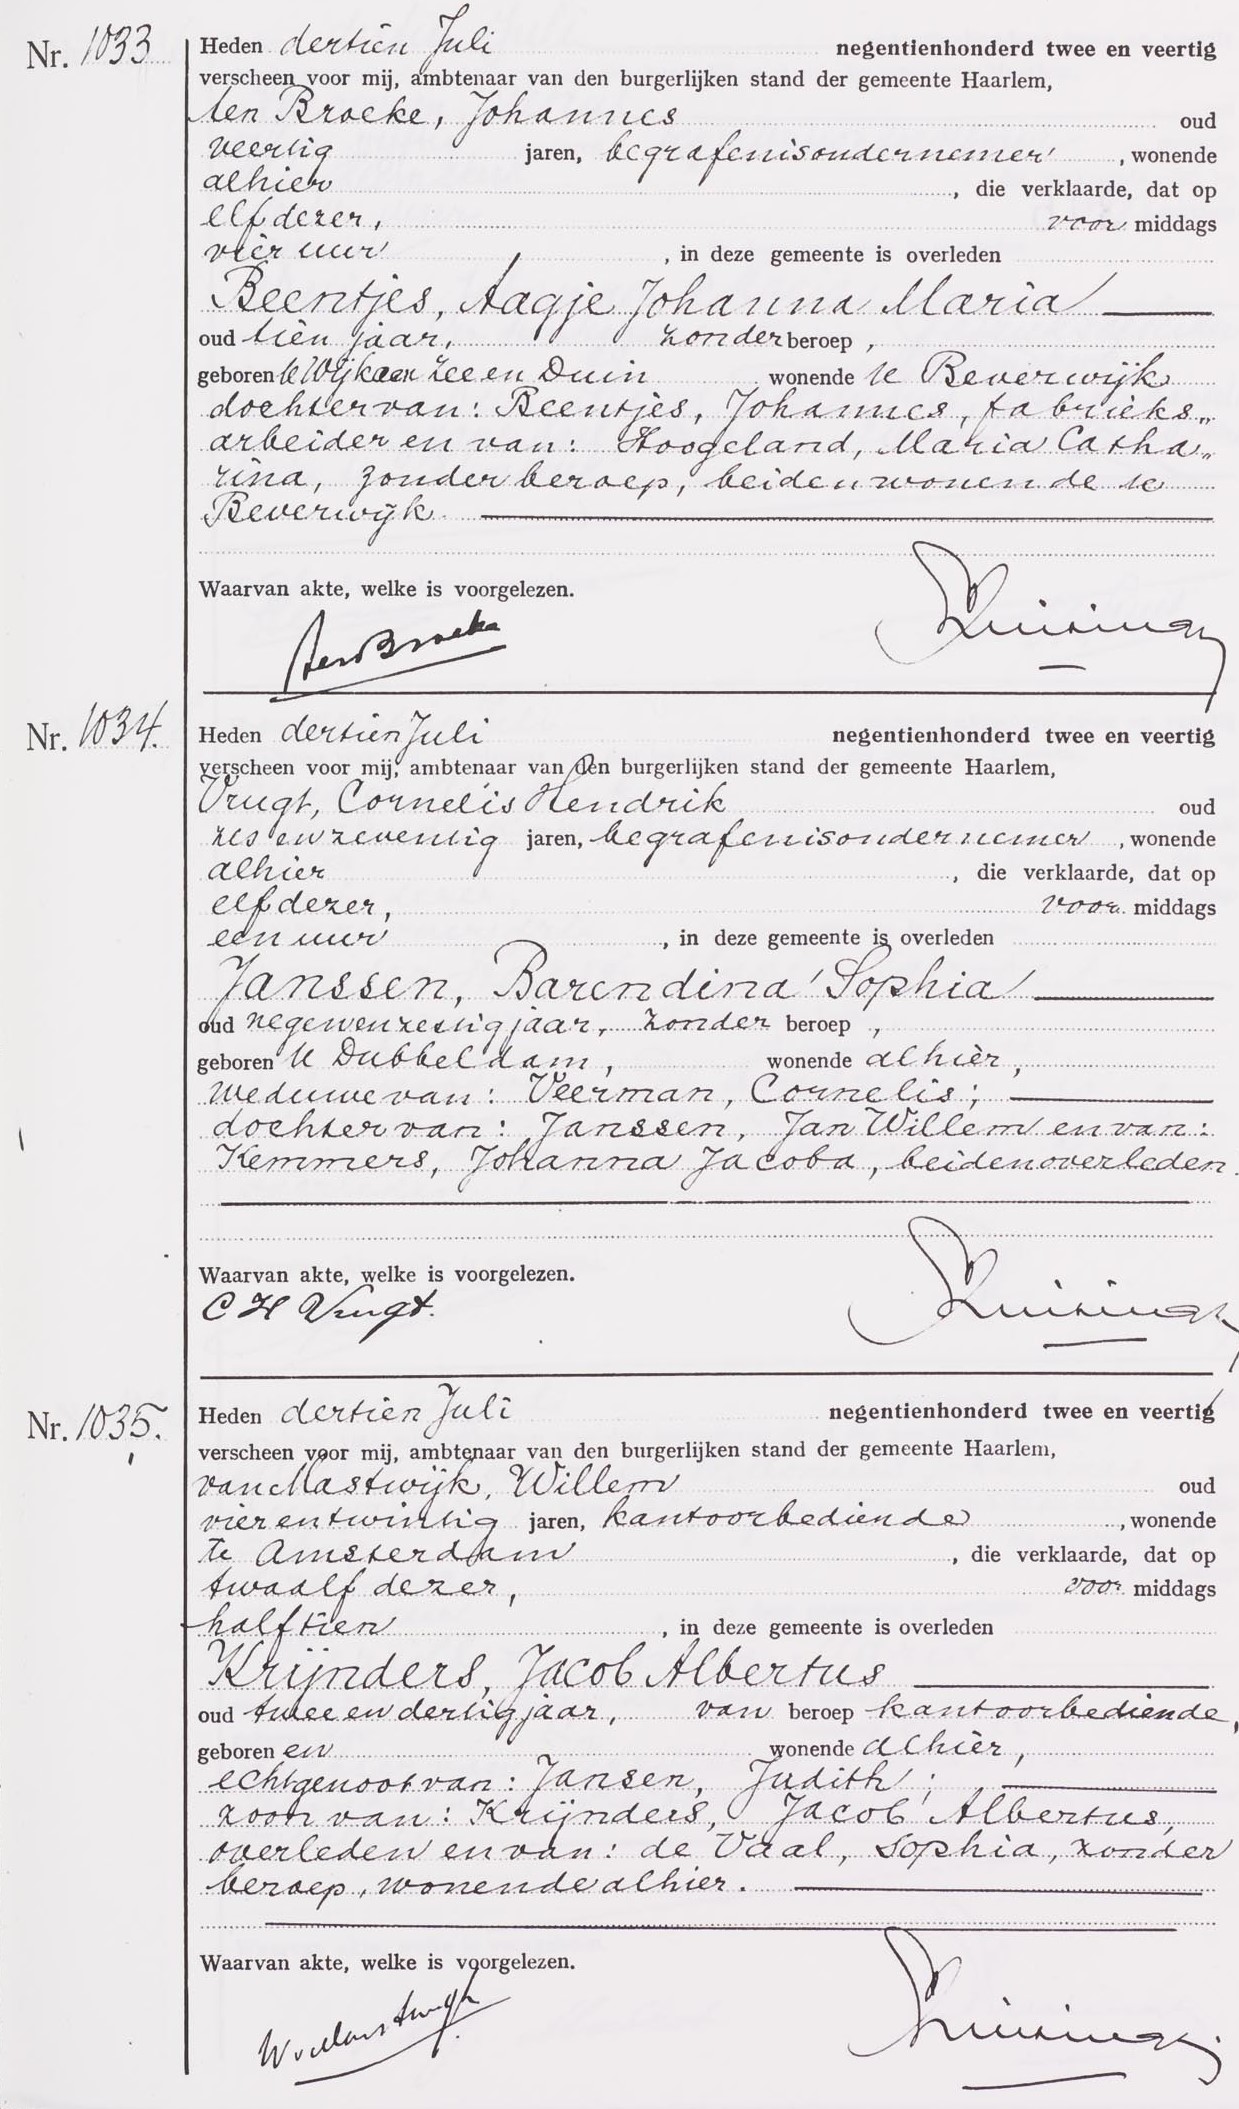 Nr. 1033 Heden dertien Juli negentienhonderd twee en veertig
verscheen voor mij, ambtenaar van den burgerlijken stand der gemeente Haarlem,
ten Broeke, Johannes oud
veertig jaren, begrafenisondernemer, wonende
alhier, die verklaarde, dat op
elf dezer, voor middags
vier uur, in deze gemeente is overleden
Beentjes, Aagje Johanna Maria
oud tien jaar, zonder beroep,
geboren te Wijk aan Zee en Duin wonende te Beverwijk
dochter van: Beentjes, Johannes, fabrieks„
arbeider en van: Hoogeland, Maria Catha„
rina, zonder beroep, beiden wonende te
Beverwijk.
Waarvan akte, welke is voorgelezen.
ten Broeke
Nr. 1034. Heden dertien Juli negentienhonderd twee en veertig
verscheen voor mij, ambtenaar van den burgerlijken stand der gemeente Haarlem,
Vrugt, Cornelis Hendrik oud
zes en zeventig jaren, begrafenisondernemer, wonende
alhier, die verklaarde, dat op
elf dezer, voor middags
een uur, in deze gemeente is overleden
Janssen, Barendina Sophia
oud negenenzestig jaar, zonder beroep,
geboren te Dubbeldam, wonende alhier,
weduwe van: Veerman, Cornelis;
dochter van: Janssen, Jan Willem en van:
Kemmers, Johanna Jacoba, beiden overleden.
Waarvan akte, welke is voorgelezen.
C H Vrugt.
Nr. 1035. Heden dertien Juli negentienhonderd twee en veertig
verscheen voor mij, ambtenaar van den burgerlijken stand der gemeente Haarlem,
van Mastwijk, Willem oud
vier en twintig jaren, kantoorbediende, wonende
te Amsterdam, die verklaarde, dat op
twaalf dezer, voor middags
half tien, in deze gemeente is overleden
Krijnders, Jacob Albertus
oud twee en dertig jaar, van beroep kantoorbediende,
geboren en wonende alhier,
echtgenoot van: Jansen, Judith;
zoon van: Krijnders, Jacob Albertus,
overleden en van: de Vaal, Sophia, zonder
beroep, wonende alhier.
Waarvan akte, welke is voorgelezen.
W v Mastwijk